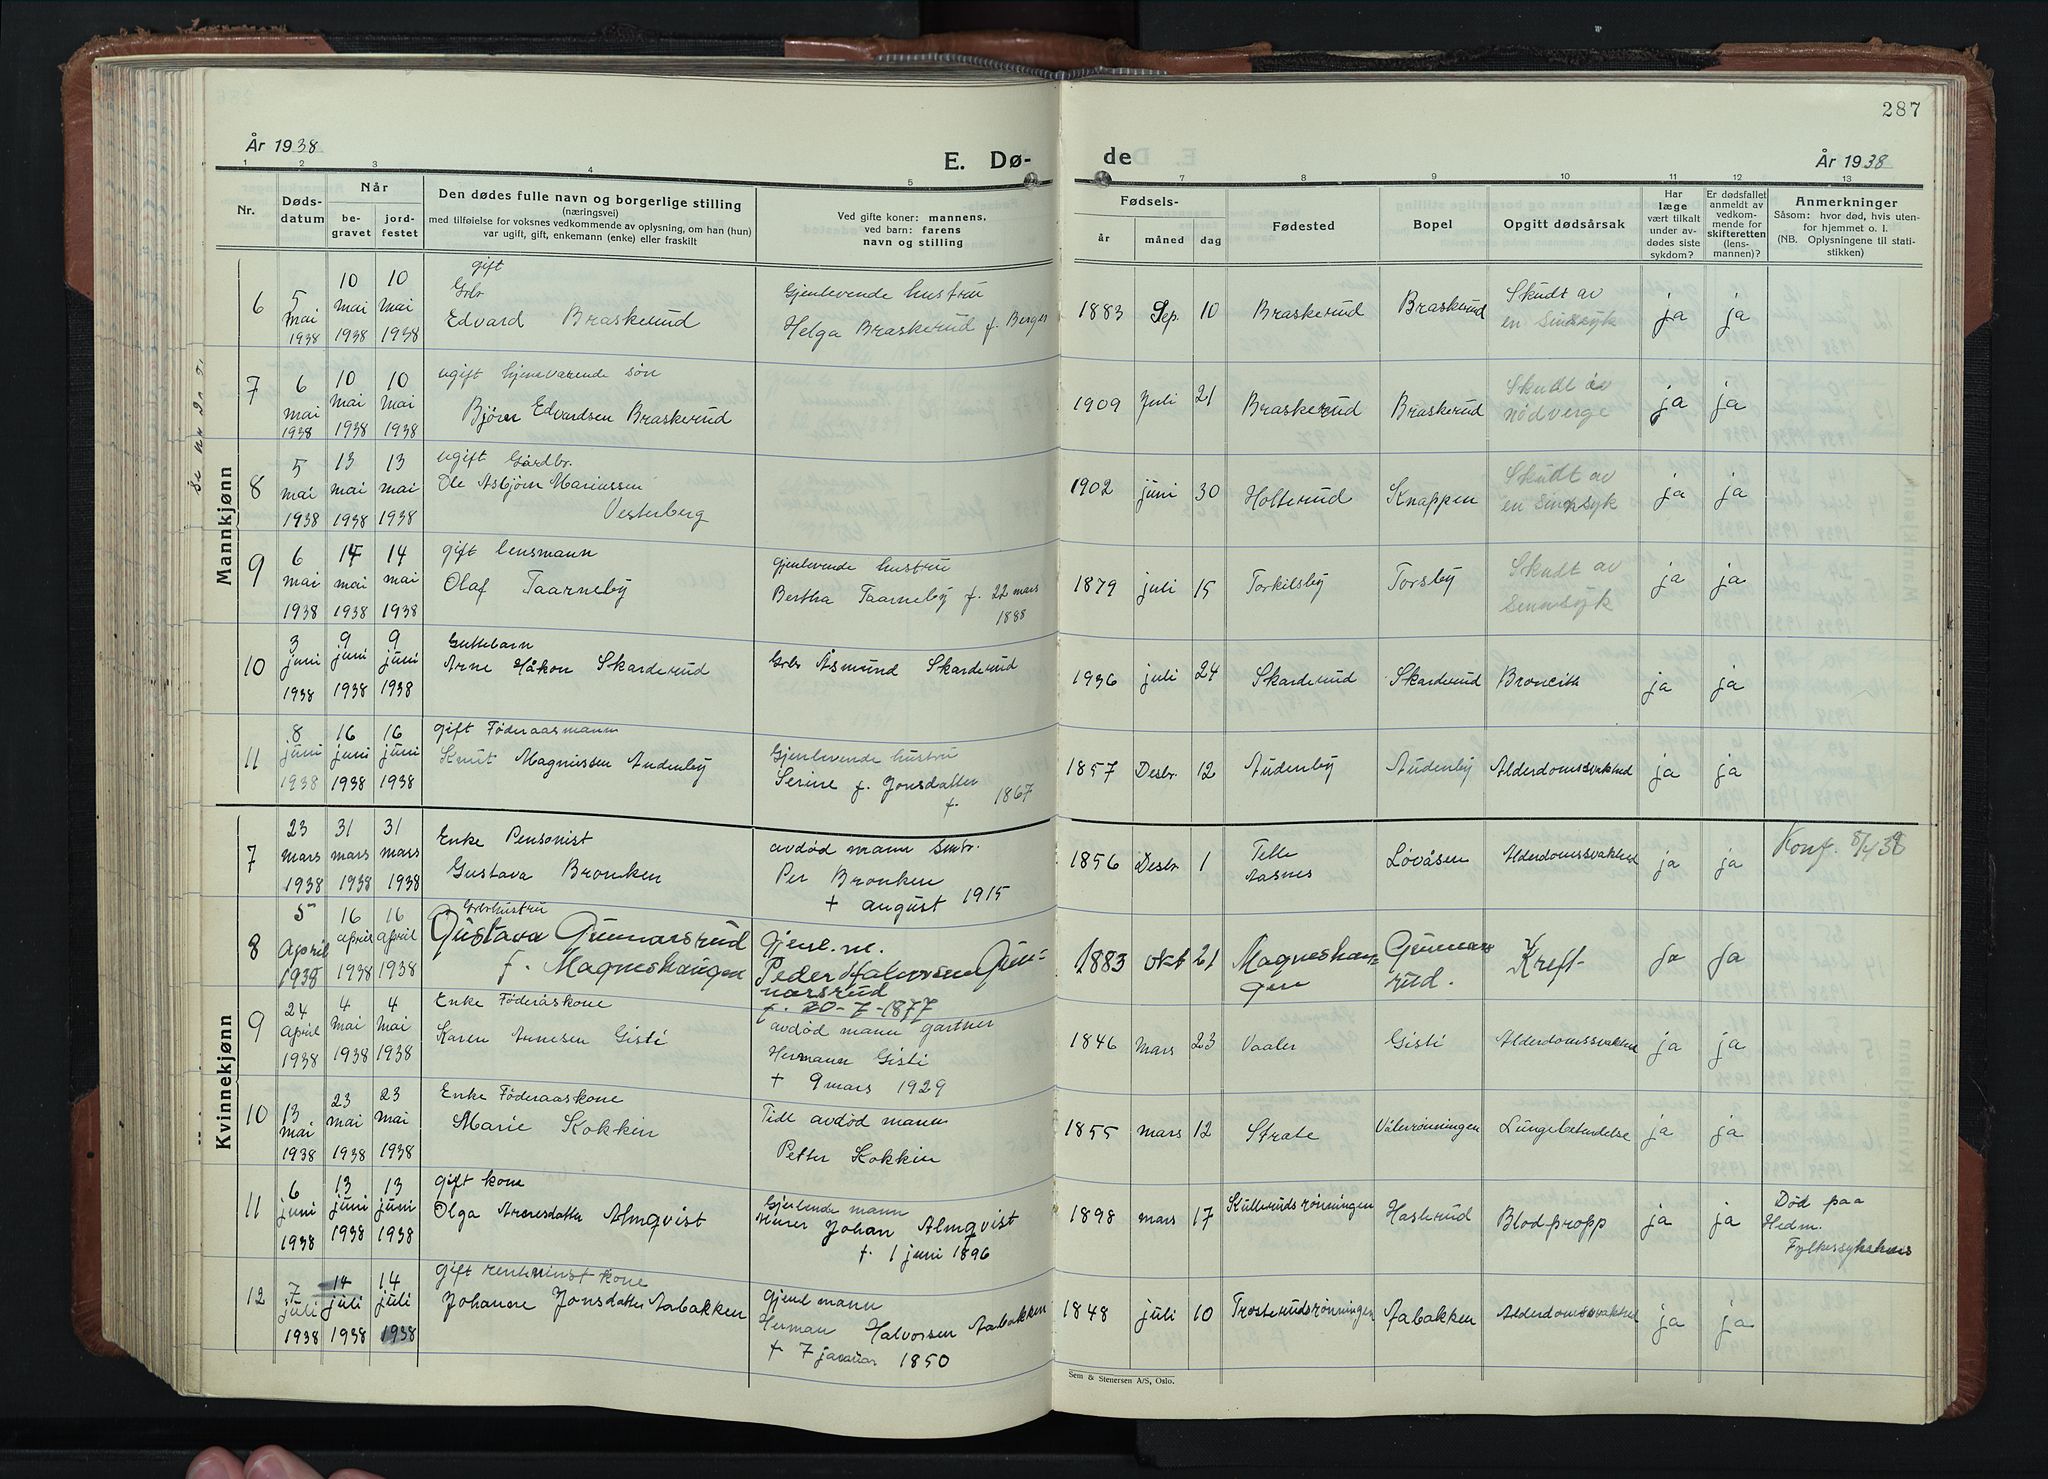 287
År 1938
E. Dø-
de
År 1938
1 2 3 4 5 7 8 9 10 11 12 13
Nr.
Døds-
datum
Når
be-
gravet
jord-
festet
Den dødes fulle navn og borgerlige stilling
(næringsvei)
med tilføielse for voksnes vedkommende av oplysning, om han (hun)
var ugift, gift, enkemann (enke) eller fraskilt
Ved gifte koner: mannens,
ved barn: farens
navn og stilling
Fødsels-
år måned dag
Fødested
Bopel
Opgitt dødsårsak
Har
læge
vært tilkalt
under av-
dødes siste
sykdom?
Er dødsfallet
anmeldt av
vedkom-
mende for
skifteretten
(lens-
mannen)?
Anmerkninger
Såsom: hvor død, hvis uten-
for hjemmet o. l.
(NB. Oplysningene til stati-
stikken)
Mannkjønn
6
5 mai 1938
10 mai 1938
10 mai 1938
gift
Grbr
Edvard Braskerud
Gjenlevende hustru
Helga Braskerud f. Berger
1883 Sep. 10 Braskerud Braskerud
Skudt av
en Sinnsyk
ja ja
7
6 mai 1938
10 mai 1938
10 mai 1938
ugift hjemeværende søn
Bjørn Edvardsen Braskerud
1909 Juli 21 Braskerud Braskerud
Skudt av
nødverge
ja ja
8
5 mai 1938
13 mai 1938
13 mai 1938
ugift Gårdbr.
Ole Asbjørn Mariussen
Vesterberg
1902 juni 30 Holterud Knappen
Skudt av
en Sinnsyk
ja ja
9
6 mai 1938
14 mai 1938
14 mai 1938
gift lensmann
Olaf Taarneby
gjenlevende hustru
Bertha Taarneby f. 22 mars
1888
1879 juli 15 Torkilsby Torsby
Skudt av
Sinnsyk
ja ja
10
3 juni 1938
9 juni 1938
9 juni 1938
Guttebarn
Arne Håkon Skarderud
Grbr Åsmund Skarderud
1936 juli 24 Skarderud Skarderud Broncith ja ja
11
8 juni 1938
16 juni 1938
16 juni 1938
gift Føderaasmann
Knut Magnussen Audenby
Gjenlevende hustru
Serine f. Jonsdatter
f. 1867
1857 Desbr. 12 Audenby Audenby Alderdomssvakhed ja ja
Kvinnekjønn
7
23 mars 1938
31 mars 1938
31 mars 1938
Enke Pensonist
Gustava Bronken
avdød mann Smbr.
Per Bronken
+ august 1915
1856 Desbr 1
Telle
Aasnes
Løvåsen Alderdomssvakhed ja ja
Konf. 8/4 38
8
5 April 1938
16 april 1938
16 april 1938
Grbrhustru
Gustava Gunnarsrud
f. Magneshaugen
gjenl. m.
Peder Halvorsen Gun-
narsrud
f. 20-7-1877
1883 okt 21
Magneshau-
gen
Gunnars
rud.
Kreft
ja ja
9
24 april 1938
4 mai 1938
4 mai 1938
Enke Føderåskone
Karen Arnesen Gisti
avdød mann gartner
Hermann Gisti
+ 9 mars 1929
1846 mars 23 Vaaler Gisti Alderdomssvakhed ja ja
10
13 mai 1938
23 mai 1938
23 mai 1938
Enke Føderaaskone
Marie Kokkin
Tidl avdød mann
Petter Kokkin
1855 mars 12 Strate Vålerrønningen Lungebetendelse ja ja
11
6 juni 1938
13 juni 1938
13 juni 1938
gift kone
Olga Arnesdatter Almqvist
Gjenlende mann
Murer Johan Almqvist
f. 1 juni 1896
1898 mars 17 Kullerudsrønningen Haslerud Blodpropp ja ja
Død paa
Hedm.
Fylkessykehus
12
7 juli 1938
14 juli 1938
14 juli 1938
gift kone
Johanne Jonsdatter Aabakken
gjenl mann
Herman Halvorsen Aabakken
f. 7 januar 1850
1848 juli 10 Trosterudsrønningen Aabakken Alderdomssvakhed ja ja
Sem & Stenersen A/S, Oslo.